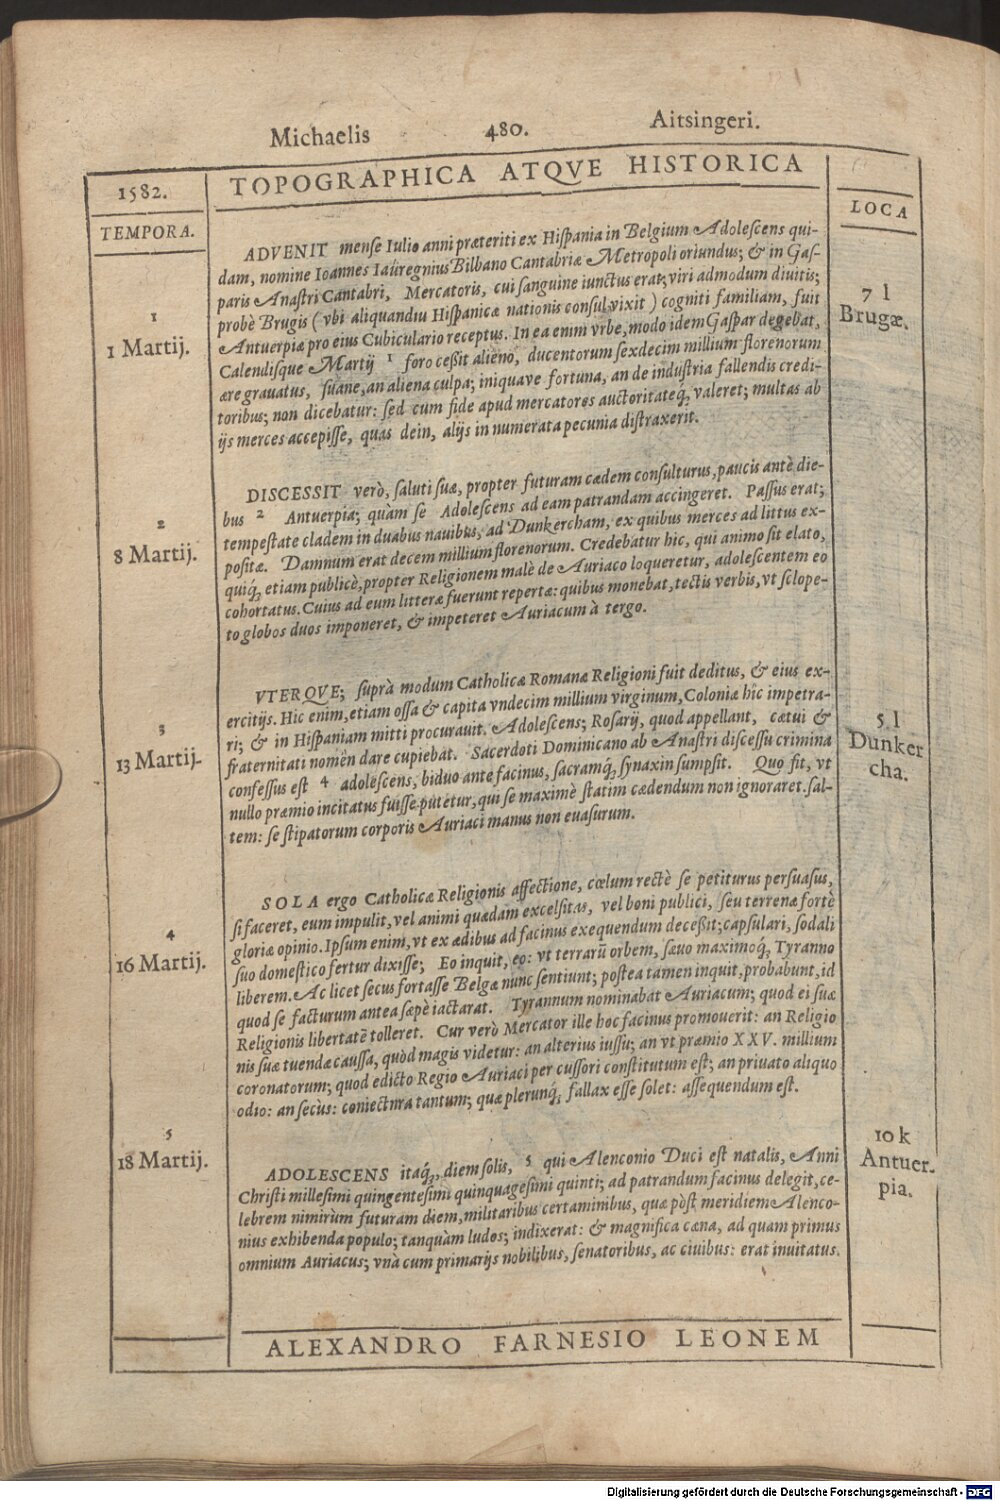 Michaelis 480. Aitsingeri.
1582. TOPOGRAPHICA ATQVE HISTORICA
TEMPORA. LOCA
ADVENIT mense Iulio anni præteriti ex Hispania in Belgium Adolescens qui-
dam, nomine Ioannes Iaüregnius Bilbano Cantabriæ Metropoli oriundus; & in Gas-
paris Anastri Cantabri, Mercatoris, cui sanguine iunctus erat, viri admodum diuitis;
probè Brugis (vbi aliquandiu Hispanicæ nationis consul vixit) cogniti familiam, fuit
Antuerpiæ pro eius Cubiculario receptus. In ea enim vrbe, modo idem Gaspar degebat,
Calendisque Martij 1 foro ceßit alieno, ducentorum sexdecim millium florenorum
ære grauatus, suáne, an aliena culpa; iniquave fortuna, an de industria fallendis credi-
toribus; non dicebatur: sed cum fide apud mercatores auctoritateq́; valeret; multas ab
ijs merces accepisse, quas dein, alijs in numerata pecunia distraxerit.
1
1 Martij.
7 l
Brugæ.
DISCESSIT verò, saluti suæ, propter futuram cædem consulturus, paucis antè die-
bus 2 Antuerpia; quàm se Adolescens ad eam patrandam accingeret. Passus erat;
tempestate cladem in duabus nauibus, ad Dunkercham, ex quibus merces ad littus ex-
positæ. Damnum erat decem millium florenorum. Credebatur hic, qui animo sit elato,
quiq́; etiam publicè, propter Religionem malè de Auriaco loqueretur, adolescentem eo
cohortatus. Cuius ad eum litteræ fuerunt repertæ: quibus monebat, tectis verbis, vt sclope-
to globos duos imponeret, & impeteret Auriacum à tergo.
2
8 Martij.
VTERQVE; suprà modum Catholicæ Romanæ Religioni fuit deditus, & eius ex-
ercitijs. Hic enim, etiam ossa & capita vndecim millium virginum, Coloniæ hic impetra-
ri; & in Hispaniam mitti procurauit. Adolescens; Rosarij, quod appellant, cætui &
fraternitati nomen dare cupiebat. Sacerdoti Dominicano ab Anastri discessu crimina
confessus est 4 adolescens, biduo ante facinus, sacramq́; synaxin sumpsit. Quo fit, vt
nullo præmio incitatus fuisse putetur, qui se maximè statim cædendum non ignoraret. sal-
tem: se stipatorum corporis Auriaci manus non euasurum.
3
13 Martij.
5 l
Dunker
cha.
SOLA ergo Catholicæ Religionis affectione, cœlum rectè se petiturus persuasus,
si faceret, eum impulit, vel animi quædam excelsitas, vel boni publici, seu terrenæ fortè
gloriæ opinio. Ipsum enim, vt ex ædibus ad facinus exequendum deceßit; capsulari, sodali
suo domestico fertur dixisse; Eo inquit, eo: vt terrarū orbem, sæuo maximoq́; Tyranno
liberem. Ac licet secus fortasse Belgæ nunc sentiunt; postea tamen inquit, probabunt, id
quod se facturum antea sæpè iactarat. Tyrannum nominabat Auriacum; quod ei suæ
Religionis libertatē tolleret. Cur verò Mercator ille hoc facinus promouerit: an Religio
nis suæ tuendæ caussa, quòd magis videtur: an alterius iussu; an vt præmio XXV. millium
coronatorum; quod edicto Regio Auriaci percussori constitutum est; an priuato aliquo
odio: an secùs: coniectura tantum; quæ plerunq́; fallax esse solet: assequendum est.
4
16 Martij.
ADOLESCENS itaq́;, diem solis, 5 qui Alenconio Duci est natalis, Anni
Christi millesimi quingentesimi quinquagesimi quinti; ad patrandum facinus delegit, ce-
lebrem nimirùm futuram diem, militaribus certaminibus, quæ pòst meridiem Alenco-
nius exhibenda populo; tanquàm ludos; indixerat: & magnifica cæna, ad quam primus
omnium Auriacus; vnà cum primarijs nobilibus, senatoribus, ac ciuibus: erat inuitatus.
5
18 Martij.
10 k
Antuer-
pia.
ALEXANDRO FARNESIO LEONEM
Digitalisierung gefördert durch die Deutsche Forschungsgemeinschaft - DFG